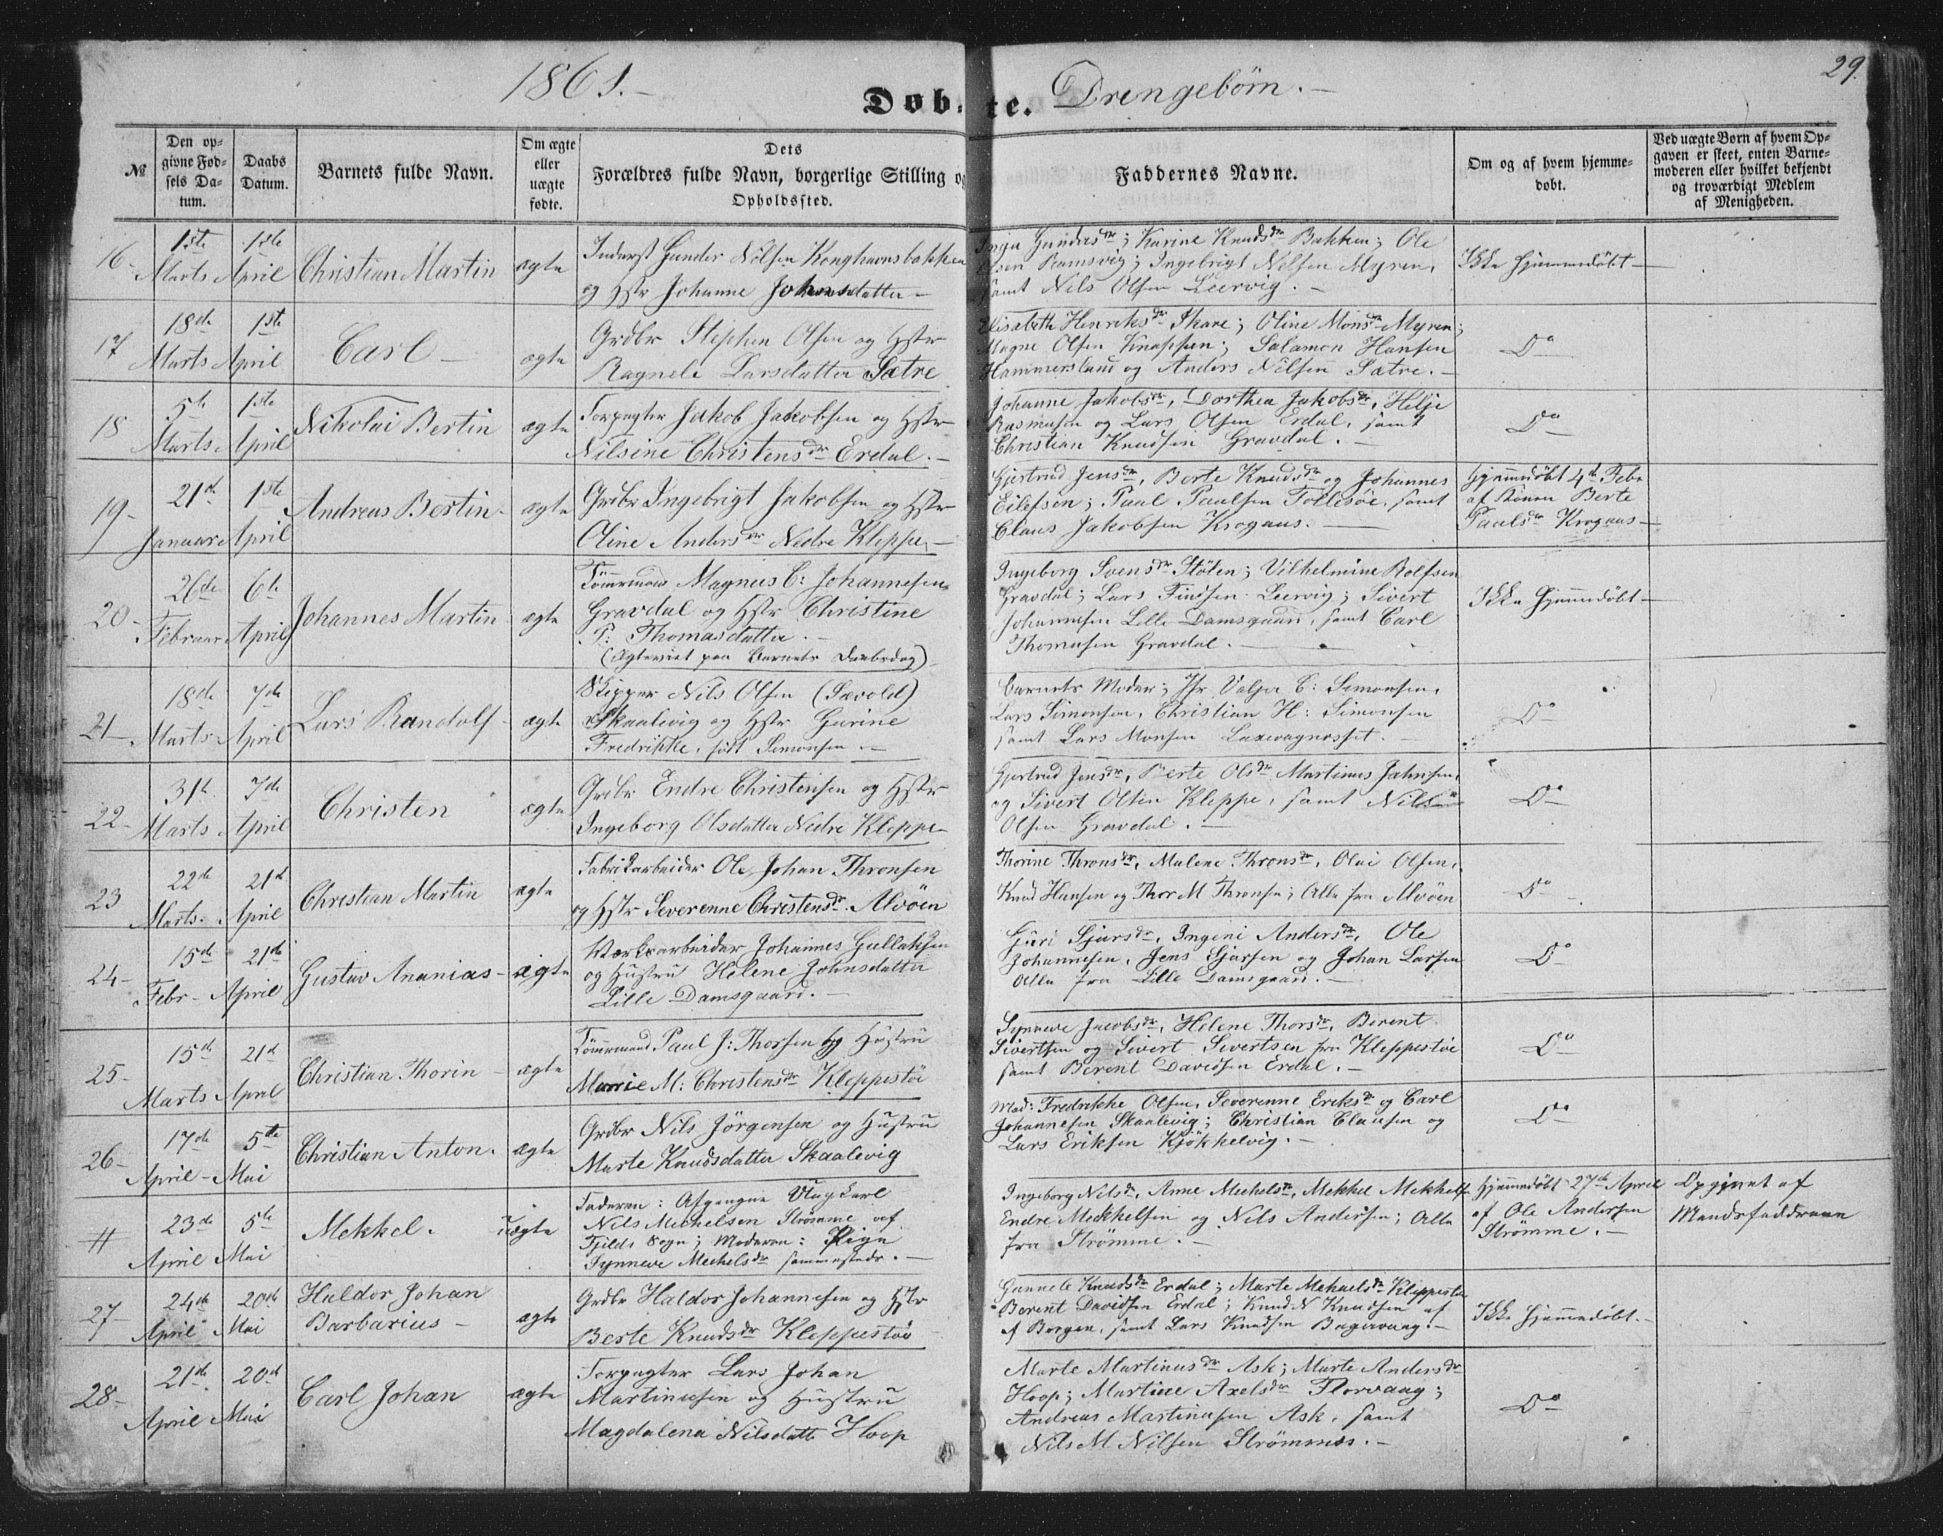 1861.-
Döbte. Drengebörn.-
29.
№
Den opgivne Fødsels Datum.
Daabs Datum.
Barnets fulde Navn.
Om ægte eller uægte fødte.
Dets Forældres fulde Navn, borgerlige Stilling og Opholdssted.
Faddernes Navne.
Om og af hvem hjemmedøbt.
Ved uægte Børn af hvem Opgaven er skeet, enten Barnemoderen eller hvilket bekjendt og troværdigt Medlem af Menigheden.
16- 1ste Marts 1ste April Christian Martin ægte
Inderst Gunder Nilsen Konghavnsbakken
og Hstr Johanne Johnsdatter-
Gundersdr; Karine Knudsdr Bakken; Ole
Ramsvig; Ingebrigt Nilsen Myren,
samt Nils Olsen Leervig.-
Ikke hjemmedöbt-
17 18de Marts 1ste April Carl- ægte
Grdbr Stephen Olsen og Hstr
Ragnele Larsdatter Sætre
Elisabeth Henriksdr Skare; Oline Monsdr Myren;
Magne Olsen Knappen; Salamon Hansen
Hammersland og Anders Nilsen Sætre.-
Do
18 5te Marts 1ste April Nikolai Bertin ægte
Forpagter Jakob Jakobsen og Hstr
Nilsine Christensdr Erdal.-
Johanne Jakobsdr, Dorthea Jakobsdr, Helje
Rasmusen og Lars Olsen Erdal, samt
Christian Knudsen Gravdal.-
Do
19- 21de Januar 1ste April Andreas Bertin- ægte
Grdbr Ingebrigt Jakobsen og Hstr
Oline Andersdr Nedre Kleppe-
Gjertrud Jensdr, Berte Knudsdr og Johannes
Eilefsen; Paul Paulsen Follesöe, samt
Claus Jakobsen Krogaas.-
Hjemmedöbt 4de Febr
af Konen Berte
Paulsdr Krogaas-
20- 26de Februar 6te April Johannes Martin- ægte
Tömrmand Magnus C: Johannesen
Gravdal og Hstr Christine
P: Thomasdatter.-
(Ægteviet paa Barnets Daabsdag)
Ingeborg Svensdr Stölen; Vilhelmine Rolfsen
Gravdal; Lars Finsen Leervig; Sivert
Johannesen Lille Damsgaard, samt Carl
Thomasen Gravdal.-
Ikke hjemmedöbt-
21- 18de Marts 7de April Lars Randolf- ægte
Skipper Nils Olsen (Sævold)
Skaalevig og Hstr Gurine
Fredrikke, född Simonsen.-
Barnets Moder; Jfr Valga C: Simonsen,
Lars Simonsen, Christian H: Simonsen
samt Lars Monsen Laxevagnæsset.-
Do
22- 31te Marts 7de April Christen ægte
Grdbr Endre Christensen og Hstr
Ingeborg Olsdatter Nedre Kleppe-
Gjertrud Jensdr, Berte Olsdr Martinus Jahnsen,
og Sivert Olsen Kleppe, samt Nils
Olsen Gravdal.-
Do
23 22de Marts- 21de April Christian Martin ægte
Fabrikarbeider Ole Johan Thronsen
og Hstr Severenne Christensdr Alvöen
Thorine Thronsdr, Malene Thronsdr, Olai Olsen,
Knud Hansen og Thor M Thronsen; Alle fra Alvöen
Do
24- 15de Febr- 21de April Gustav Ananias- ægte
Værksarbeider Johannes Gullaksen
og Hustru Helene Johnsdatter
Lille Damsgaard.-
Guri Sjursdr, Ingeni Andersdr, Ole
Johannesen, Jens Sjursen og Johan Larsen
Alle fra Lille Damsgaard.-
Do
25- 15de Marts 21de April Christian Thorin- ægte
Tömrmand Paul J: Thorsen og Hustru
Marrie M: Christensdr Kleppestöe
Synneve Jacobsdr, Helene Thorsdr, Berent
Sivertsen og Sivert Sivertsen fra Kleppestöe
samt Berent Davidsen Erdal.-
Do
26- 17de April- 5te Mai Christian Anton. ægte
Grdbr Nils Jörgensen og Hustru
Marte Knudsdatter Skaalevig
Mad: Fredrikke Olsen, Severenne Eriksdr og Carl
Johannesen Skaalevig; Christian Clausen og
Lars Eriksen Kjökkelvig.-
Do
# 23de April 5te Mai Mekkel. uægte
Faderen: Afgangne Ungkarl
Nils Mechelsen Strömme af
Fjelds Sogn; Moderen: Pige
Synneve Mechelsdr sammesteds.-
Ingeborg Nilsdr, Anne Mechelsdr, Mekkel Mekkelsen
Endre Mekkelsen og Nils Andersen; Alle
fra Strömme.-
Hjemmedöbt 27de April
af Ole Andersen
Strömme.-
Opgivet af
Mandsfadderne
27- 24de April 20de Mai Haldor Johan Barbarius- ægte
Grdbr Haldor Johannesen og Hstr
Berte Knudsdr Kleppestöe
Gunnele Knudsdr Erdal; Marte Mekaelsdr Kleppestöe
Berent Davidsen Erdal; Knud N Knudsen af
af Bergen, samt Lars Knudsen Bagervaag.-
Ikke hjemmedöbt.-
28- 21de April 20de Mai Carl Johan ægte
Forpagter Lars Johan
Martinusen og Hustru
Magdalena Nilsdatte Hoop
Marte Martinusdr Ask; Marte Andersdr
Hoop; Martine Axelsdr Florvaag;
Andreas Martinusen Ask, samt
Nils M Nilsen Strömnæs.-
Do